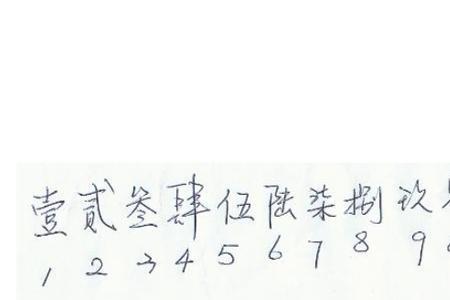 壹贰叁肆伍陆柒捌玖
1 2 3 4 5 6 7 8 9